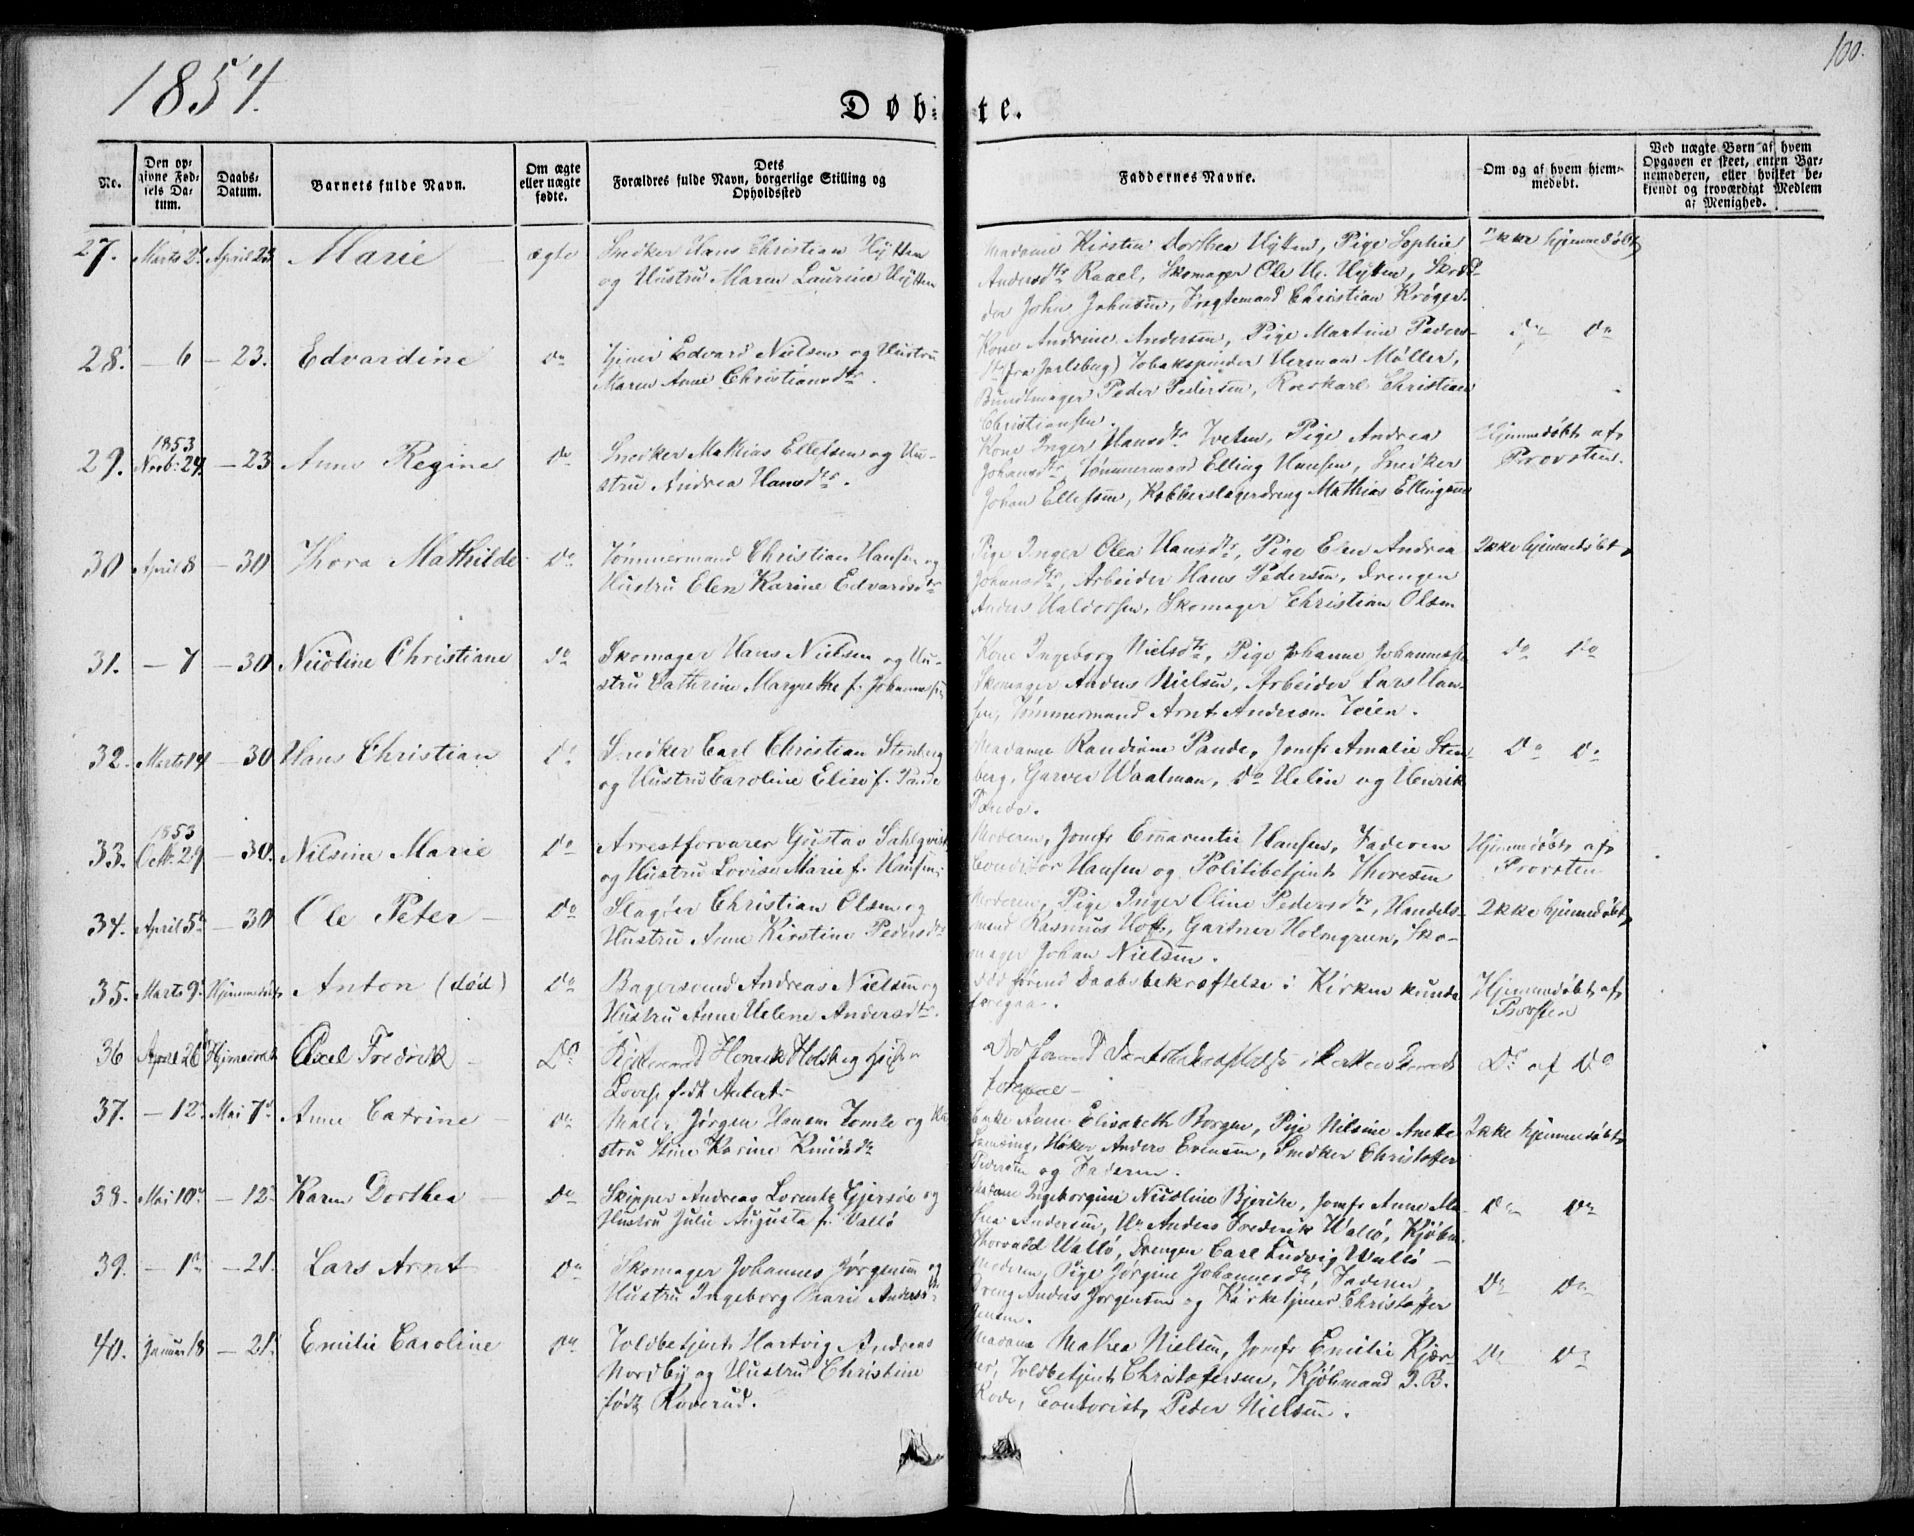 1854.
100.
Døbte.
No.
Den opgivne Fødsels Datum.
Daabs-Datum.
Barnets fulde Navn.
Om ægte eller uægte fødte.
Dets Forældres fulde Navn, borgerlige Stilling og Opholdssted
Faddernes Navne.
Om og af hvem hjemmedøbt.
Ved uægte Børn af hvem Opgaven er skeet, enten Barnemoderen, eller hvilket bekjendt og troværdigt Medlem af Menighed.
27. Marts 2. April 23 Marie ægte Snedker Hans Christian Hytten
og Hustru Maren Laurine Hytten
Madame Kirsten Dorthea Hytten, Pige Sophie
Andersdtr Raael, Skomager Ole H. Hytten,
John Johnsen, Fragtemand Christian Krøger.
Ikke hjemmedøbt
28. – 6 – 23. Edvardine Do Edvard Nielsen og Hustru
Maren Anne Christiansdtr.
Kone Andrine Andersen, Pige Martine Peders-
dtr (fra Jarlsberg) Tobakspinder Herman Møller,
Bundtmager Peder Pedersen, Christian
Christiansen.
Do Do
29. 1853 Novb: 24 – 23 Anne Regine Do Snedker Mathias Ellefsen og Hu-
stru Andrea Hansdtr.
Kone Inger Hansdtr Tveten, Pige Andrea
Johansdtr, Tømmermand Elling Hansen, Snedker
Johan Ellefsen, Kobberslagerdreng Mathias Ellingsen
Hjemmedøbt af
Provsten.
30 April 8 – 30 Thora Mathilde Do Tømmermand Christian Hansen og
Hustru Elen Karine Edvardsdtr
Pige Inger Olea Hansdtr, Pige Elen Andrea
Johansdtr, Arbeider Hans Pedersen, Drengen
Anders Halvorsen, Skomager Christian Olsen
Ikke hjemmedøbt
31. – 7 – 30 Nicoline Christiane Do Skomager Hans Nielsen og Hu-
stru Cathrine Margrethe f. Johannesen
Kone Ingeborg Nielsdtr, Pige Johanne Johannesen
Skomager Anders Nielsen, Arbeider Lars Han-
sen, Tømmermand Arnt Andersen Teien.
Do Do
32. Marts 14 – 30 Hans Christian Do Snedker Carl Christian Stenberg
og Hustru Caroline Elise f. Pande
Madame Randine Pande, Jomfr Amalie Sten-
berg, Garver Waalman, Do Helin og Henrik
Pande.
Do Do
33. 1853 Octb. 29 – 30. Nilsine Marie Do Arrestforvarer Gustav Sahlqvist
og Hustru Lovise Marie f. Hansen
Moderen, Jomfr Emarentie Hansen, Faderen
Conditor Hansen og Politibetjent Thoresen
Hjemmedøbt af
Provsten
34. April 5 – 30 Ole Peter – Do Slagter Christian Olsen og
Hustru Anne Kirstine Pedersdtr
Moderen, Pige Inger Oline Pedersdtr, Handels-
mand Rasmus Hoft, Gartner Holmgreen, Sko-
mager Johan Nielsen.
Ikke hjemmedøbt
35. Marts 9 Hjemmedøbt Anton (død) Do Bagersvend Andreas Nielsen og
Hustru Anne Helene Andersdtr.
død førend Daabsbekræftelse i Kirken kunde
foregaa.
Hjemmedøbt af
Provsten
36 April 26 Hjemmedøbt Axel Fredrik – Do Henrik Holst og
Lovise født Aubert –
Død førend
foregaae –
Do af Do
37. – 12 Mai 7 Anne Catrine – Do Maler Jørgen Hansen Tomte og Hu
stru Stine Karine Knudsdtr
Enke Anne Elisabeth Borgen, Pige Nilsine Anette
Høker Anders Evensen, Smedker Christoffer
Pedersen og Faderen.
Ikke hjemmedøbt
38. Mai 10 – 12 Karen Dorthea – Do Skipper Andreas Lorentz Gjersøe og
Hustru Julie Augusta f. Vallø
Madame Ingeborgine Nicoline Bjerke, Jomfr Anne Ma-
thea Andersen, Hr Anders Frederik Wallø, Kjøbm.
Thorvald Wallø, Drengen Carl Ludvig Wallø –
Do Do
39. – 1 – 21. Lars Arnt Do Skomager Johannes Jørgensen og
Hustru Ingeborg Marie Andersdtr
Moderen, Pige Jørgine Johannesdtr, Faderen,
Dreng Anders Jørgensen og Kirketjener Christoffer
Jensen.
Do Do
40. Januar 18 – 21. Emilie Caroline Do Toldbetjent Hartvig Andreas
Nordby og Hustru Christine
født Roverud.
Madame Mathea Nielsen, Jomfr Emilie Kjær-
ner, Toldbetjent Christofersen, Kjøbmand I. B.
Rode, Contorist Peder Nielsen.
Do Do